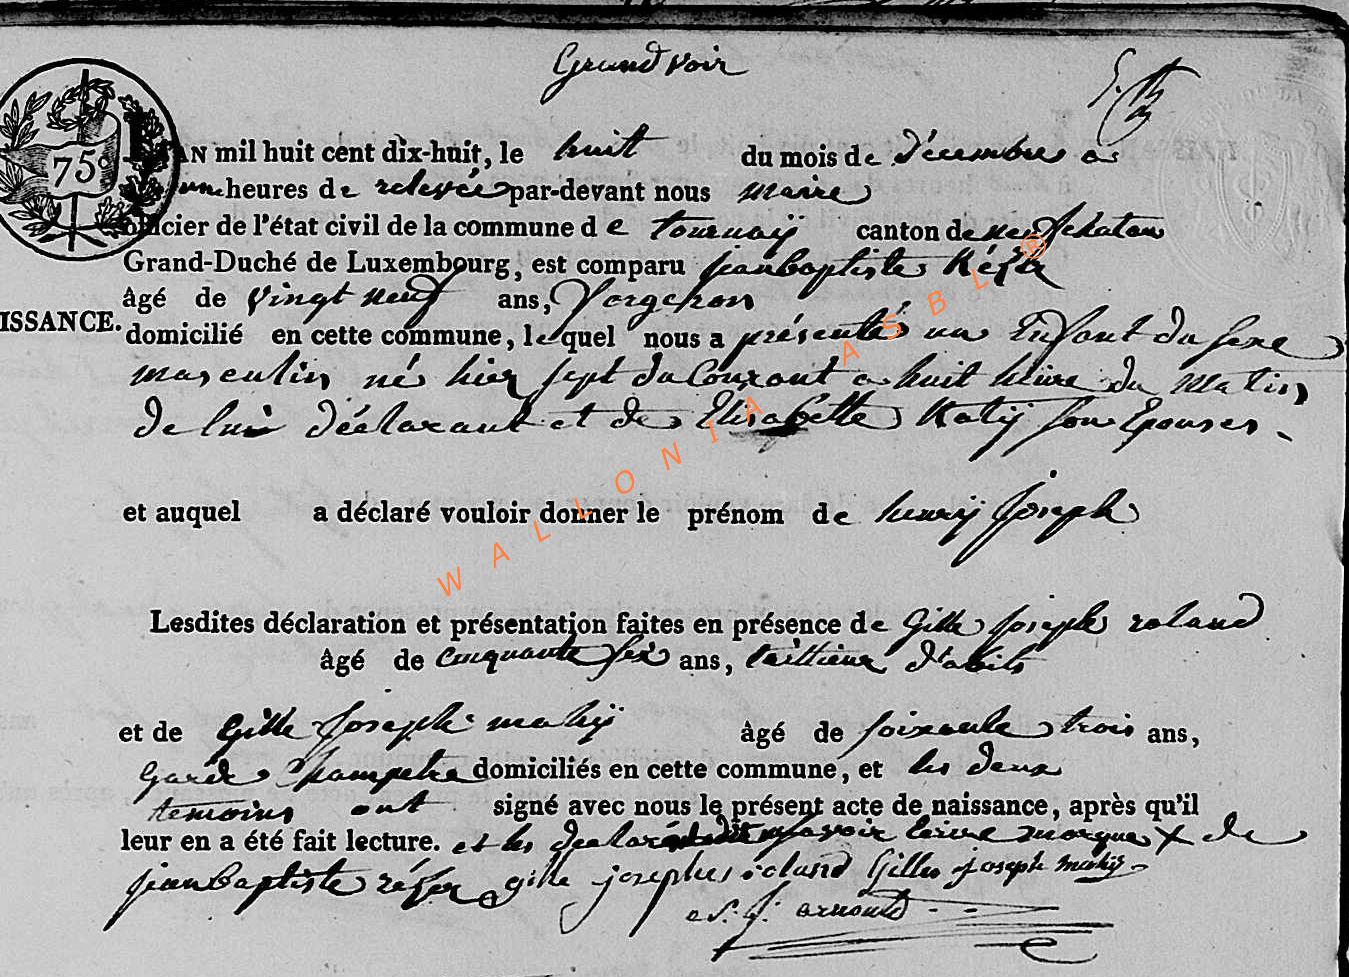 Grandvoir
75c
L'AN mil huit cent dix-huit, le huit du mois de décembre a
une heures de relevée par-devant nous maire
officier de l'état civil de la commune de tournaÿ canton de neufchatau
Grand-Duché de Luxembourg, est comparu jeanbaptiste
âgé de vingt neuf ans, forgeron
ISSANCE.
domicilié en cette commune, lequel nous a présentés un Enfant du sexe
masculin né hier sept du Courant a huit heure du Matin
de lui déclarant et de Elisabette Katÿ son Epouser
et auquel a déclaré vouloir donner le prénom de henrÿ Joseph
Lesdites déclaration et présentation faites en présence de Gille Joseph roland
âgé de cinquante six ans, taillieur d'abits
et de Gille Joseph mahÿ âgé de soixante trois ans,
Garde Champetre domiciliés en cette commune, et les deux
temoins ont signé avec nous le présent acte de naissance, après qu'il
leur en a été fait lecture. et les marque X de
jeanbaptiste gille joseph roland Gilles joseph mahÿ
arnould
WALLONIA ASBL ®